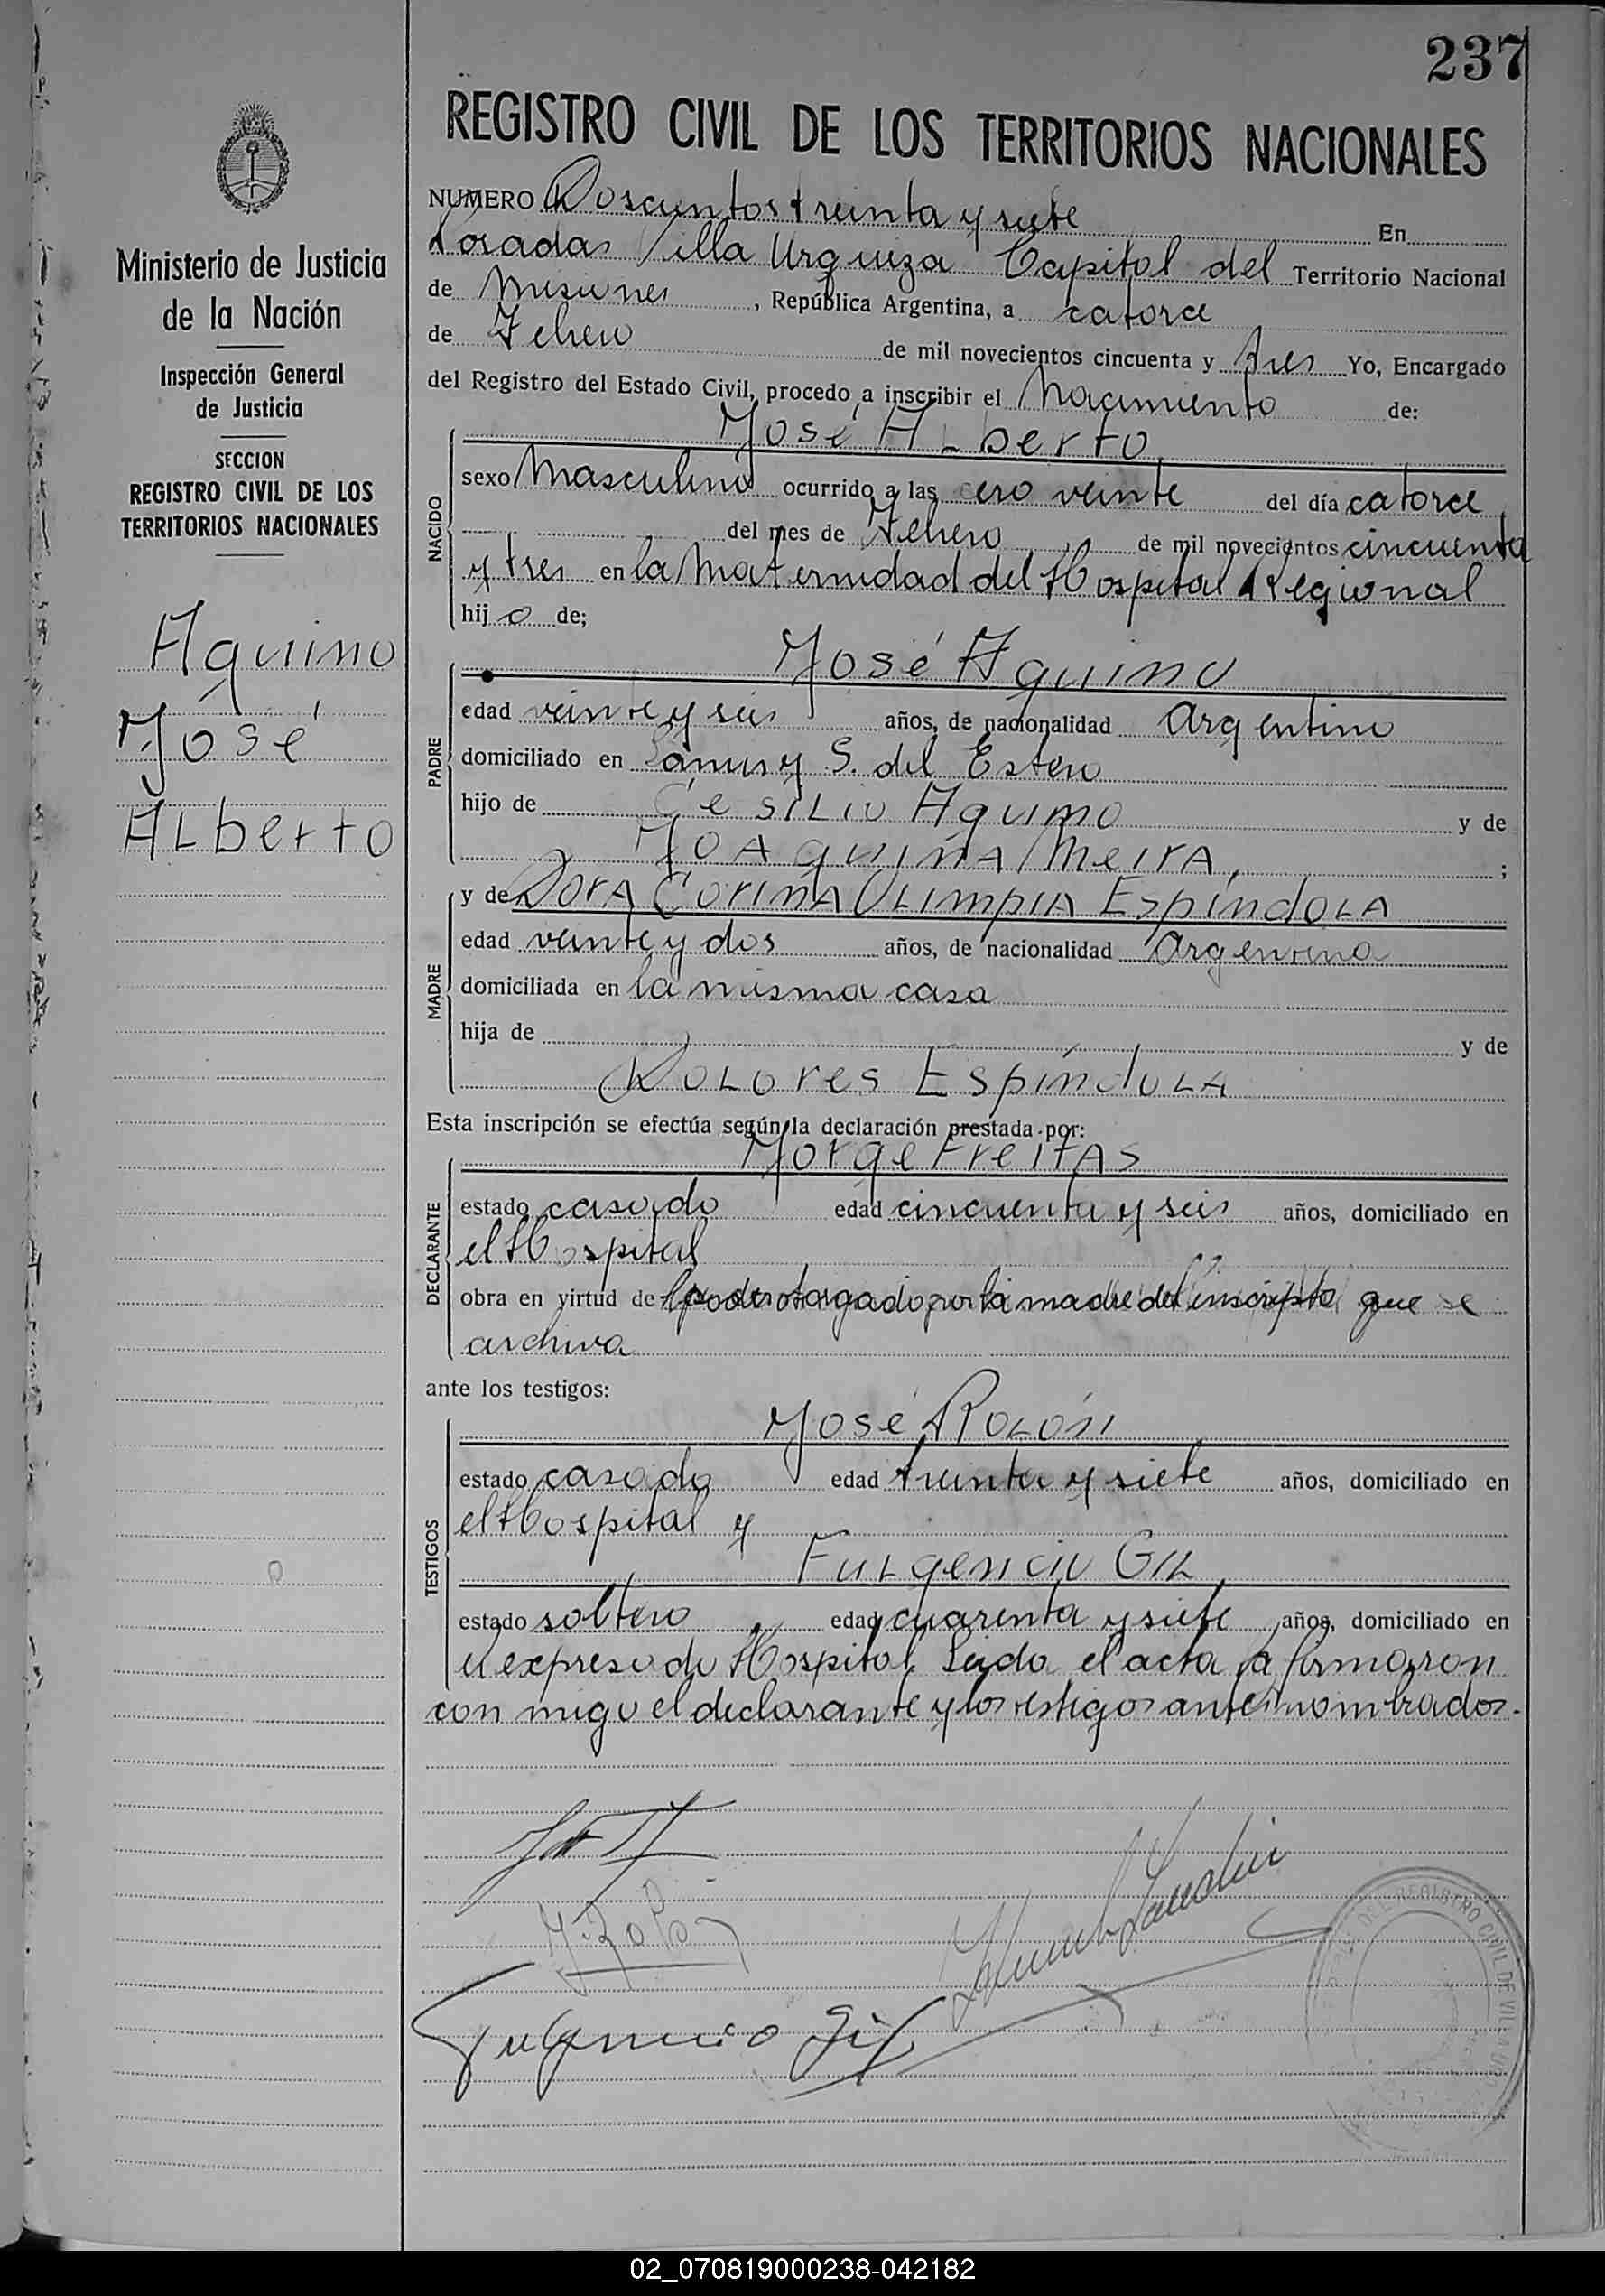 237
REGISTRO CIVIL DE LOS TERRITORIOS NACIONALES
Ministerio de Justicia
de la Nación
Inspección General
de Justicia
SECCION
REGISTRO CIVIL DE LOS
TERRITORIOS NACIONALES
Aquino
José
Alberto
NUMERO Doscientos treinta y siete En
Posadas Villa Urquiza Capital del Territorio Nacional
de Misiones, República Argentina, a catorce
de Febrero de mil novecientos cincuenta y tres Yo, Encargado
del Registro del Estado Civil, procedo a inscribir el Nacimiento de:
NACIDO
José Alberto
sexo Masculino ocurrido a las cero veinte del día catorce
del mes de Febrero de mil novecientos cincuenta
y tres en la Maternidad del Hospital Regional
hijo de;
PADRE
José Aquino
edad veinte y seis años, de nacionalidad Argentino
domiciliado en Lanus y S. del Estero
hijo de Cesilio Aquino y de
Joaquina Meira ;
MADRE
y de Dora Corina Olimpia Espíndola
edad veinte y dos años, de nacionalidad Argentina
domiciliada en la misma casa
hija de y de
Dolores Espíndola
Esta inscripción se efectúa según la declaración prestada por:
DECLARANTE
Jorge Freitas
estado casado edad cincuenta y seis años, domiciliado en
el Hospital
obra en virtud de poder otorgado por la madre del inscripto que se
archiva
ante los testigos:
TESTIGOS
José Rolón
estado casado edad treinta y siete años, domiciliado en
el Hospital y
Fulgencio Gil
estado soltero edad cuarenta y siete años, domiciliado en
el expresado Hospital Leida el acta la firmaron
con migo el declarante y los testigos antes nombrados.
J. Rolón
Fulgencio Gil
REGISTRO CIVIL DE VILLA
02_070819000238-042182